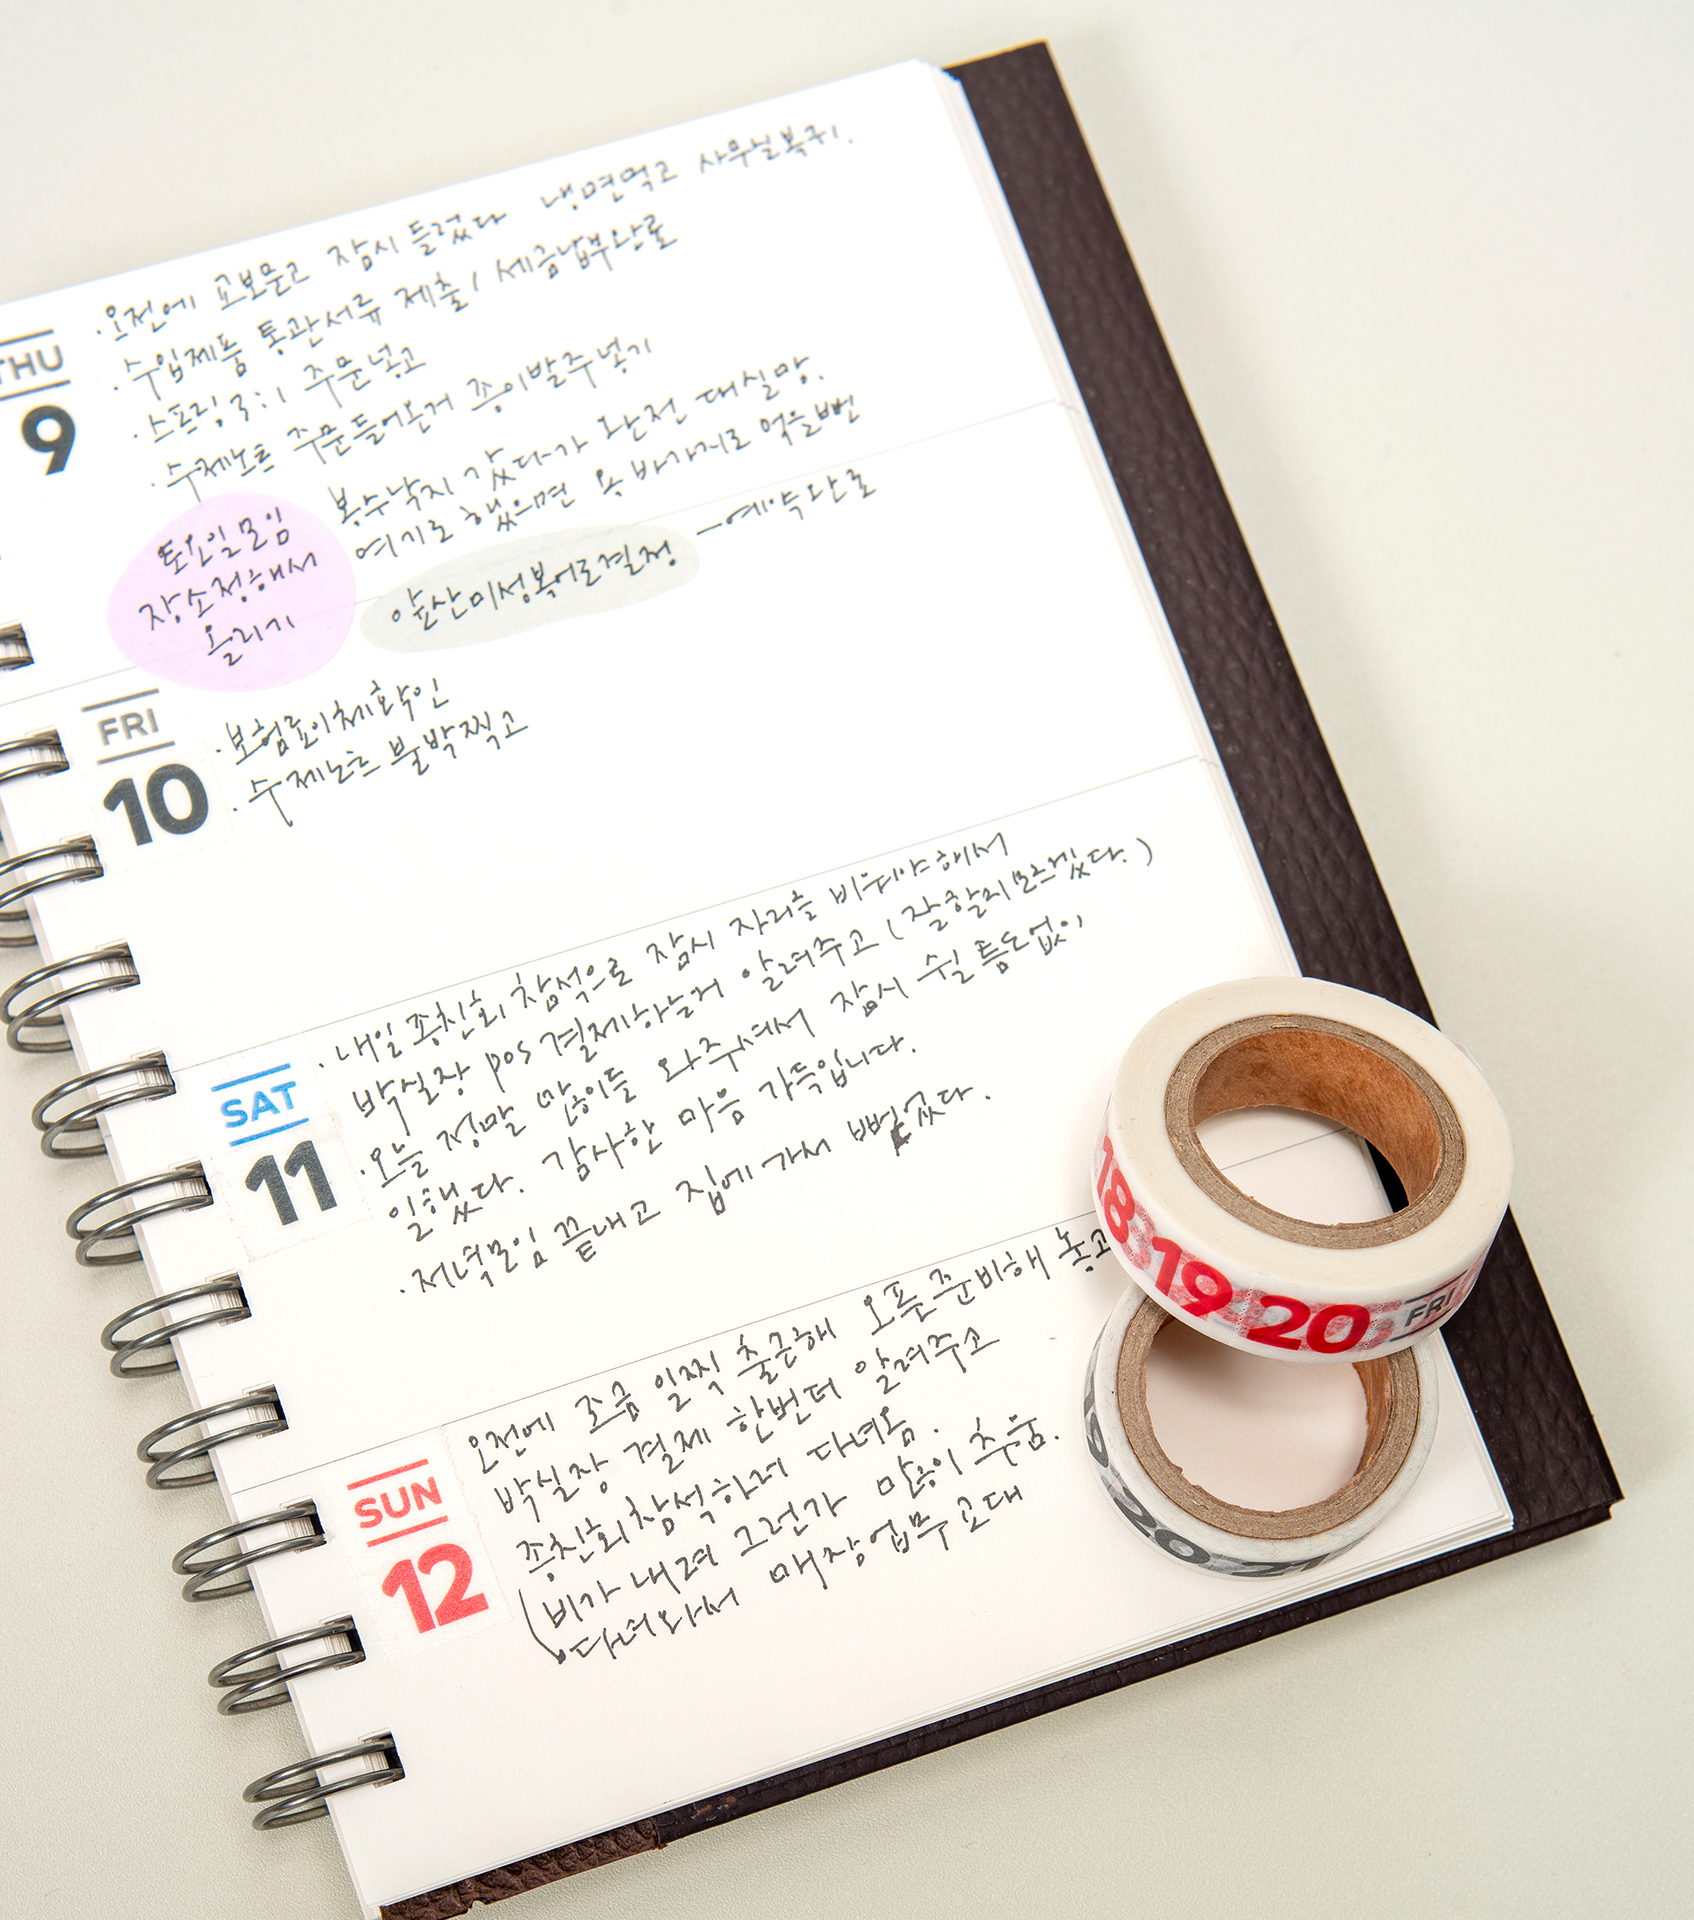 THU
9
·오전에 교보문고 잠시 들렀다 냉면먹고 사무실복귀.
·수입제품 통관서류 제출/세금납부완료
·스프링 3:1 주문넣고
·수제노트 주문들어온거 종이발주넣기
봉수낙지 갔다가 완전 대실망.
여기로 했으면 욕 바가지로 먹을뻔
토요일모임
장소정해서
올리기
앞산미성복어로결정
-예약완료
FRI
10
·보험료이체확인
·수제노트 불박찍고
SAT
11
·내일 종친회 참석으로 잠시 자리를 비워야해서
박실장 pos 결제하는거 알려주고 (잘할지모르겠다.)
·오늘 정말 많이들 와주셔서 잠시 쉴 틈도없이
일했다. 감사한 마음 가득입니다.
·저녁모임 끝내고 집에가서 뻗었다.
SUN
12
오전에 조금 일찍 출근해 오픈준비해 놓고
박실장 결제 한번더 알려주고
종친회참석하러 다녀옴.
(비가 내려 그런가 많이 추움.
다녀와서 매장업무 교대
18 19 20 FRI
20